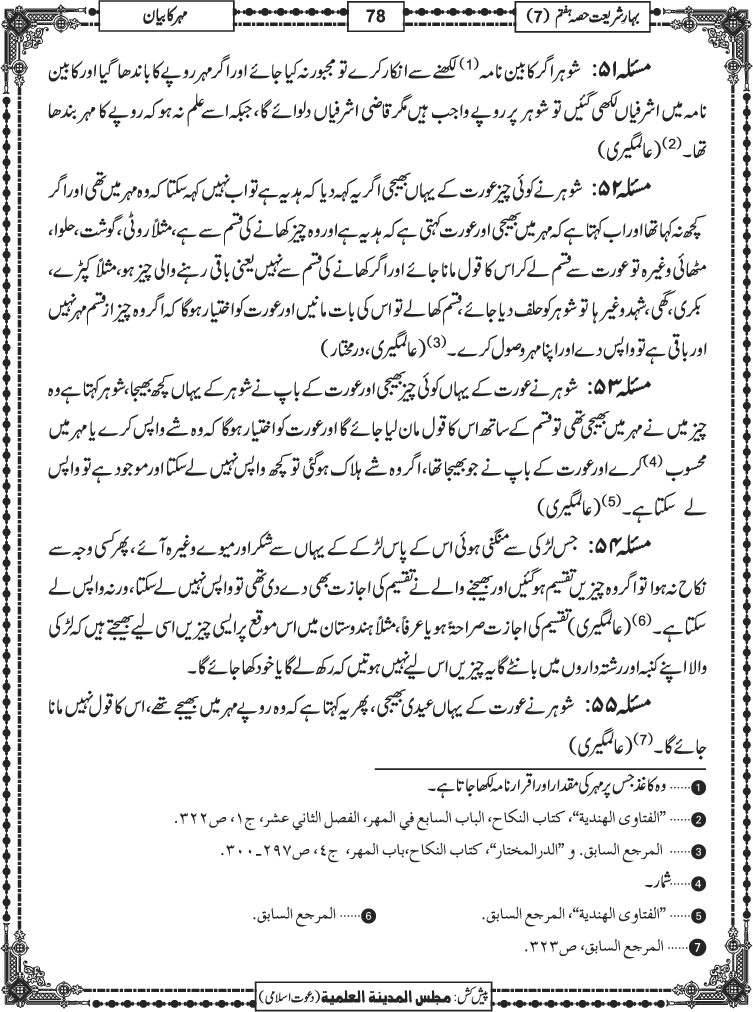 بہارِ شریعت حصہ ہفتم (7)
78
مہر کا بیان
مسئلہ ۵۱: شوہر اگر کابین نامہ (1) لکھنے سے انکار کرے تو مجبور نہ کیا جائے اور اگر مہر روپے کا باندھا گیا اور کابین
نامہ میں اشرفیاں لکھی گئیں تو شوہر پر روپے واجب ہیں مگر قاضی اشرفیاں دلوائے گا، جبکہ اسے علم نہ ہو کہ روپے کا مہر بندھا
تھا۔ (2) (عالمگیری)
مسئلہ ۵۲: شوہر نے کوئی چیز عورت کے یہاں بھیجی اگر یہ کہہ دیا کہ ہدیہ ہے تو اب نہیں کہہ سکتا کہ وہ مہر میں تھی اور اگر
کچھ نہ کہا تھا اور اب کہتا ہے کہ مہر میں بھیجی اور عورت کہتی ہے کہ ہدیہ ہے اور وہ چیز کھانے کی قسم سے ہے، مثلاً روٹی، گوشت، حلوا،
مٹھائی وغیرہ تو عورت سے قسم لے کر اس کا قول مانا جائے اور اگر کھانے کی قسم سے نہیں یعنی باقی رہنے والی چیز ہو، مثلاً کپڑے،
بکری، گھی، شہد وغیرہا تو شوہر کو حلف دیا جائے، قسم کھا لے تو اس کی بات مانیں اور عورت کو اختیار ہوگا کہ اگر وہ چیز از قسم مہر نہیں
اور باقی ہے تو واپس دے اور اپنا مہر وصول کرے۔ (3) (عالمگیری، درمختار)
مسئلہ ۵۳: شوہر نے عورت کے یہاں کوئی چیز بھیجی اور عورت کے باپ نے شوہر کے یہاں کچھ بھیجا، شوہر کہتا ہے وہ
چیز میں نے مہر میں بھیجی تھی تو قسم کے ساتھ اس کا قول مان لیا جائے گا اور عورت کو اختیار ہوگا کہ وہ شے واپس کرے یا مہر میں
محسوب (4) کرے اور عورت کے باپ نے جو بھیجا تھا، اگر وہ شے ہلاک ہوگئی تو کچھ واپس نہیں لے سکتا اور موجود ہے تو واپس
لے سکتا ہے۔ (5) (عالمگیری)
مسئلہ ۵۴: جس لڑکی سے منگنی ہوئی اس کے پاس لڑکے کے یہاں سے شکر اور میوے وغیرہ آئے، پھر کسی وجہ سے
نکاح نہ ہوا تو اگر وہ چیزیں تقسیم ہوگئیں اور بھیجنے والے نے تقسیم کی اجازت بھی دے دی تھی تو واپس نہیں لے سکتا، ورنہ واپس لے
سکتا ہے۔ (6) (عالمگیری) تقسیم کی اجازت صراحۃً ہو یا عرفاً، مثلاً ہندوستان میں اس موقع پر ایسی چیزیں اسی لیے بھیجتے ہیں کہ لڑکی
والا اپنے کنبہ اور رشتہ داروں میں بانٹے گا یہ چیزیں اس لیے نہیں ہوتیں کہ رکھ لے گا یا خود کھا جائے گا۔
مسئلہ ۵۵: شوہر نے عورت کے یہاں عیدی بھیجی، پھر یہ کہتا ہے کہ وہ روپے مہر میں بھیجے تھے، اس کا قول نہیں مانا
جائے گا۔ (7) (عالمگیری)
1 ...... وہ کاغذ جس پر مہر کی مقدار اور اقرار نامہ لکھا جاتا ہے۔
2 ...... "الفتاوى الهندية"، كتاب النكاح، الباب السابع في المهر، الفصل الثاني عشر، ج١، ص٣٢٢.
3 ...... المرجع السابق. و "الدرالمختار"، كتاب النكاح،باب المهر، ج٤، ص٢٩٧ـ٣٠٠.
4 ...... شمار۔
5 ...... "الفتاوى الهندية"، المرجع السابق. 6 ...... المرجع السابق.
7 ...... المرجع السابق، ص٣٢٣.
پیش کش: مجلس المدینة العلمیة (دعوت اسلامی)